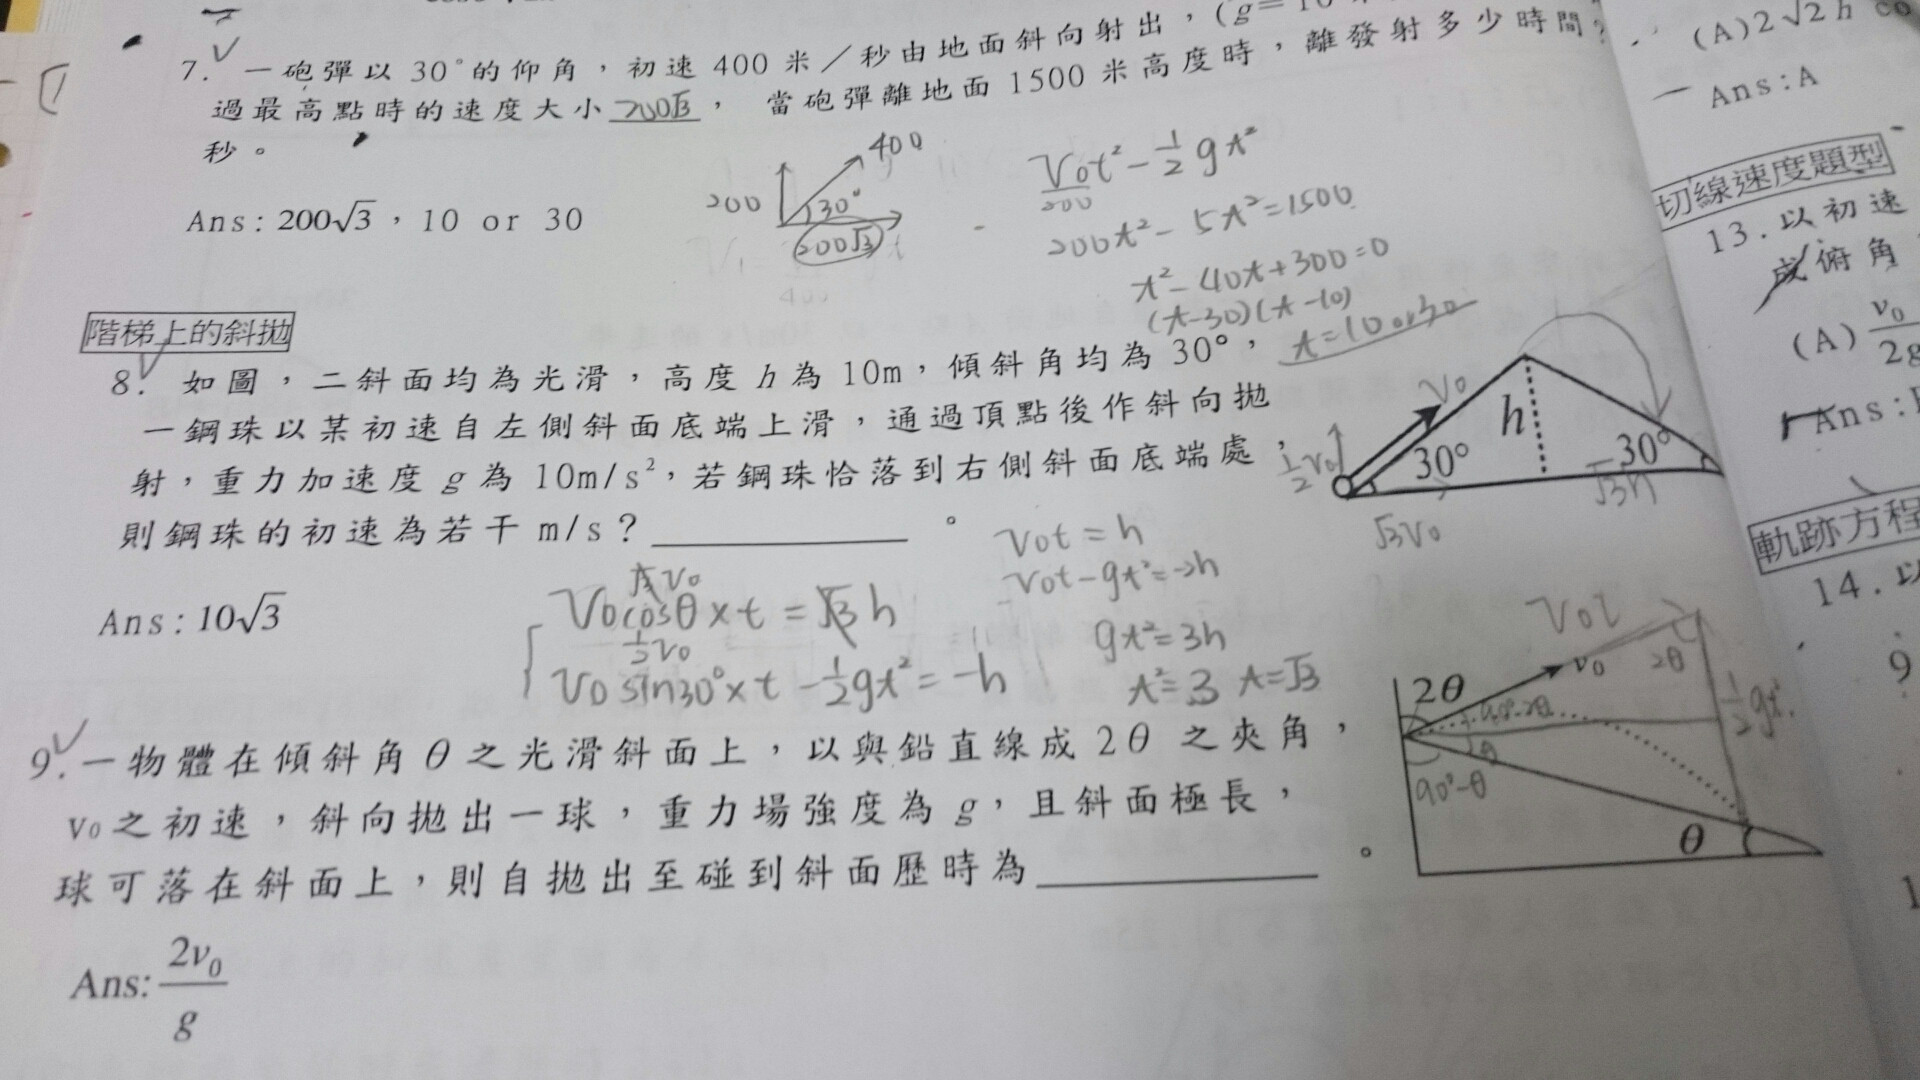 7. 一砲彈以 30°的仰角，初速 400 米／秒由地面斜向射出，(g=10
過最高點時的速度大小 200√3 ， 當砲彈離地面 1500 米高度時，離發射多少時間?
秒。
Ans: 200√3 , 10 or 30
400
200
30°
200√3
V₀t² - 1/2 gt²
200
200t² - 5t² = 1500
t² - 40t + 300 = 0
(t-30)(t-10)
t = 10 or 30
階梯上的斜拋
8. 如圖，二斜面均為光滑，高度 h 為 10m，傾斜角均為 30°，
一鋼珠以某初速自左側斜面底端上滑，通過頂點後作斜向拋
射，重力加速度 g 為 10m/s²，若鋼珠恰落到右側斜面底端處，
則鋼珠的初速為若干 m/s？ 。
V₀
h
30°
30°
1/2 V₀
√3h
√3V₀
Ans: 10√3
V₀cosθ × t = √3 h
1/2 V₀
V₀ sin30° × t - 1/2 gt² = -h
V₀t = h
V₀t - gt² = -2h
gt² = 3h
t² = 3 t = √3
9. 一物體在傾斜角 θ 之光滑斜面上，以與鉛直線成 2θ 之夾角，
v₀ 之初速，斜向拋出一球，重力場強度為 g，且斜面極長，
球可落在斜面上，則自拋出至碰到斜面歷時為 。
V₀t
v₀
2θ
2θ
90°-2θ
θ
90°-θ
1/2 gt²
θ
Ans: 2v₀/g
(A) 2√2 h co
Ans: A
切線速度題型
13. 以初速
成俯角
(A) v₀/2g
Ans:
軌跡方程
14. 以
9